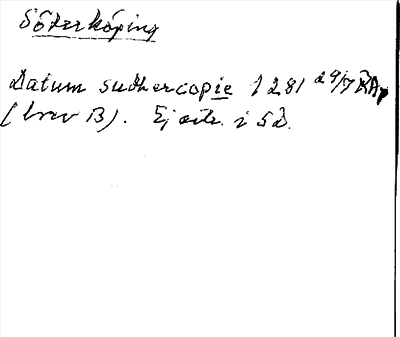 Söderköping
Datum sudhercopie 1281 29/7 RAp
(brev B). Ej citr. i SD.